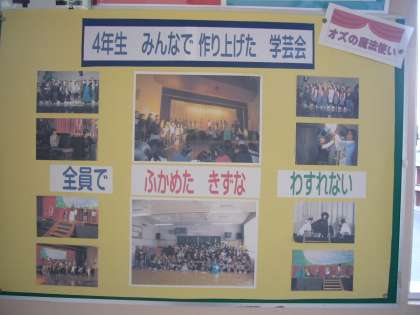 4年生 みんなで 作り上げた 学芸会
オズの魔法使い
全員で ふかめた きずな わすれない